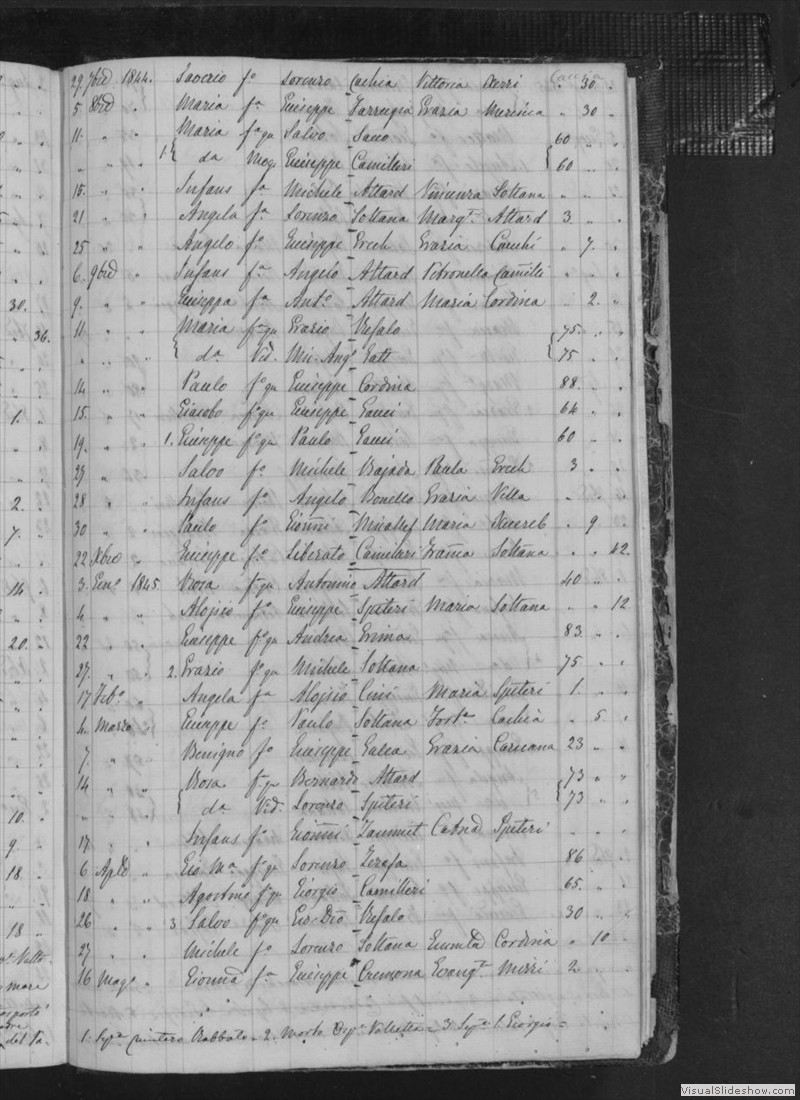 29. 7bre 1844. Saverio fo Lorenzo Cachia Vittoria 30
5. 8bre Maria fa Giuseppe Farrugia Grazia 30
11. Maria fa qu Salvo 60
1. { da Mog. Giuseppe Camilleri { 60
15. Infans fa Michele Attard Vincenza Soltana
21 Angela fa Lorenzo Soltana Margta Attard 3.
25 Angelo fo Giuseppe Grech Grazia 7.
6. 9bre Infans fa Angelo Attard Petronella Camilli
9. Giuseppa fa Anto Attard Maria Cordina 2.
11. Maria fa qu Grazio Refalo { 75.
{ da Ved. Mic. Ango Gatt { 75
14 Paulo fo qu Giuseppe Cordina 88.
15. Giacobo fo qu Giuseppe Gauci 64
19. 1. Giuseppe fo qu Paulo Gauci 60
27 Salvo fo Michele Bajada Paula Grech 3
28 Infans fo Angelo Bonello Grazia Vella
30 Paulo fo Gionni Micallef Maria Xuereb 9
22 Xbre Giuseppe fo Liberato Camilleri Franca Soltana 42.
3. Geno 1845. Rosa fa qu Antonino Attard 40
4. Alojsio fo Giuseppe Spiteri Maria Soltana 12
22 Giuseppe fo qu Andrea 83.
27. 2. Grazio fo qu Michele Soltana 75
17 Febo Angela fa Alojsio Cini Maria Spiteri 1.
4. Marzo Giuseppe fo Paulo Soltana Forta Cachia 5.
7. Benigno fo Giuseppe Galea Grazia Caruana 23
14 Rosa fa qu Bernardo Attard { 73
{ da Ved. Lorenzo Spiteri { 73
17. Infans fo Gionni Zammit Catnd Spiteri
6 Aple Gio Ma fo qu Lorenzo Zerafa 86
18 Agostino fo qu Giorgio Camilleri 65.
26 3 Salvo fo qu Gio. Dio Refalo 30
27 Michele fo Lorenzo Soltana Cordina 10
16 Mago Gionna fa Giuseppe Cremona Evangta 2.
1. Sepo Rabbato = 2. Morto Valletta = 3. Sepo S. Giorgio =
30.
36.
1.
2.
7.
14
20.
10.
9.
18
18
mare
del
VisualSlideshow.com